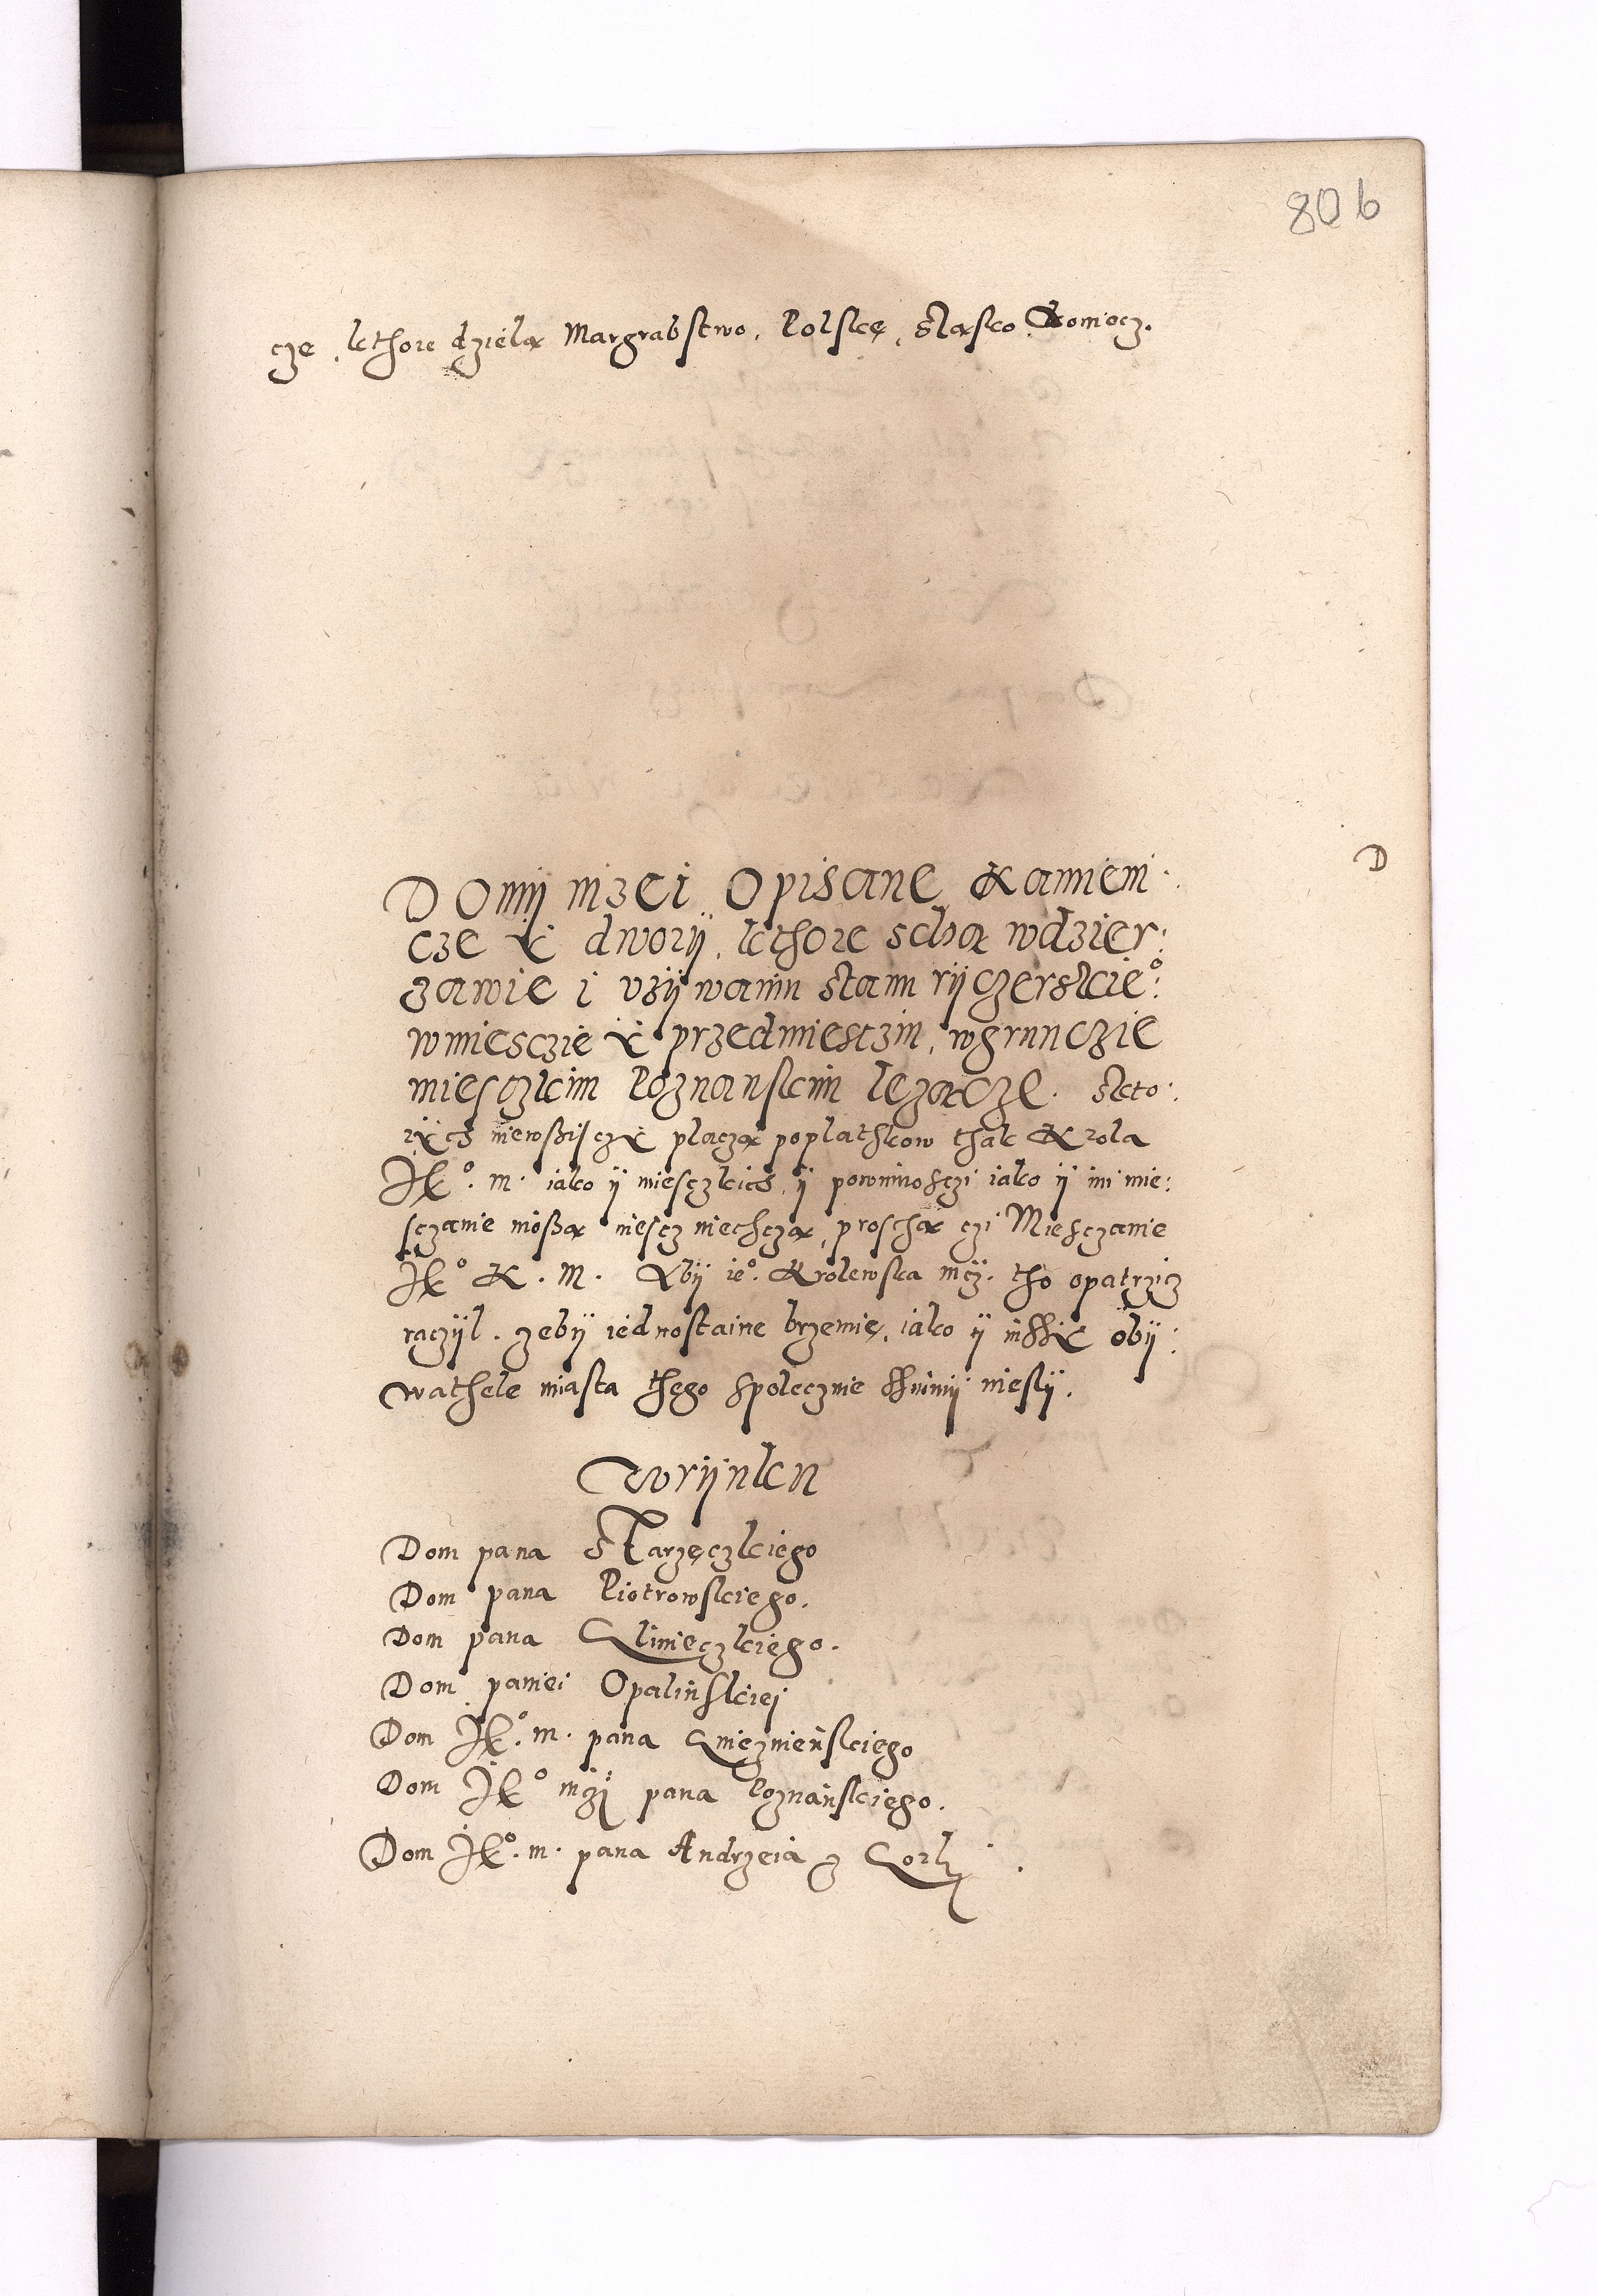 806
cze, kthore dzielą Margrabstwo, Polskę, Sląsko. Koniecz.
D
Domÿ nizei opisane Kamieni:
cze ÿ dworÿ, kthore schą wdzier:
zawie i vzÿwaniu stanu rÿczerskie°:
wmiesczie ÿ przedmiescziu, wgrunczie
miesczkim Poznanskim lezącze. Kto:
rÿch niewßisczÿ placzą poplathkow thak Krola
Jk°. m. iako ÿ miesczkich, ÿ powinnosczi iako ÿ ini mie:
sczanie nioßą niescz niechczą, proschą czi Miesczanie
Jk° K. M. Abÿ ie°. Krolewska mcz. tho opatrzicz
raczÿl. zebÿ iednostaine brzemię, iako ÿ inßÿ obÿ:
wathele miasta thego spolecznie ßnimÿ niesly.
Wrÿnku
Dom pana Starzęczkiego
Dom pana Piotrowskiego.
Dom pana Glinieczkiego.
Dom paniei Opalinskiej
Dom Jk°. m. pana Gnieznieńskiego
Dom Jk° mczi pana Poznańskiego.
Dom Jk°. m. pana Andrzeia z Gorki.